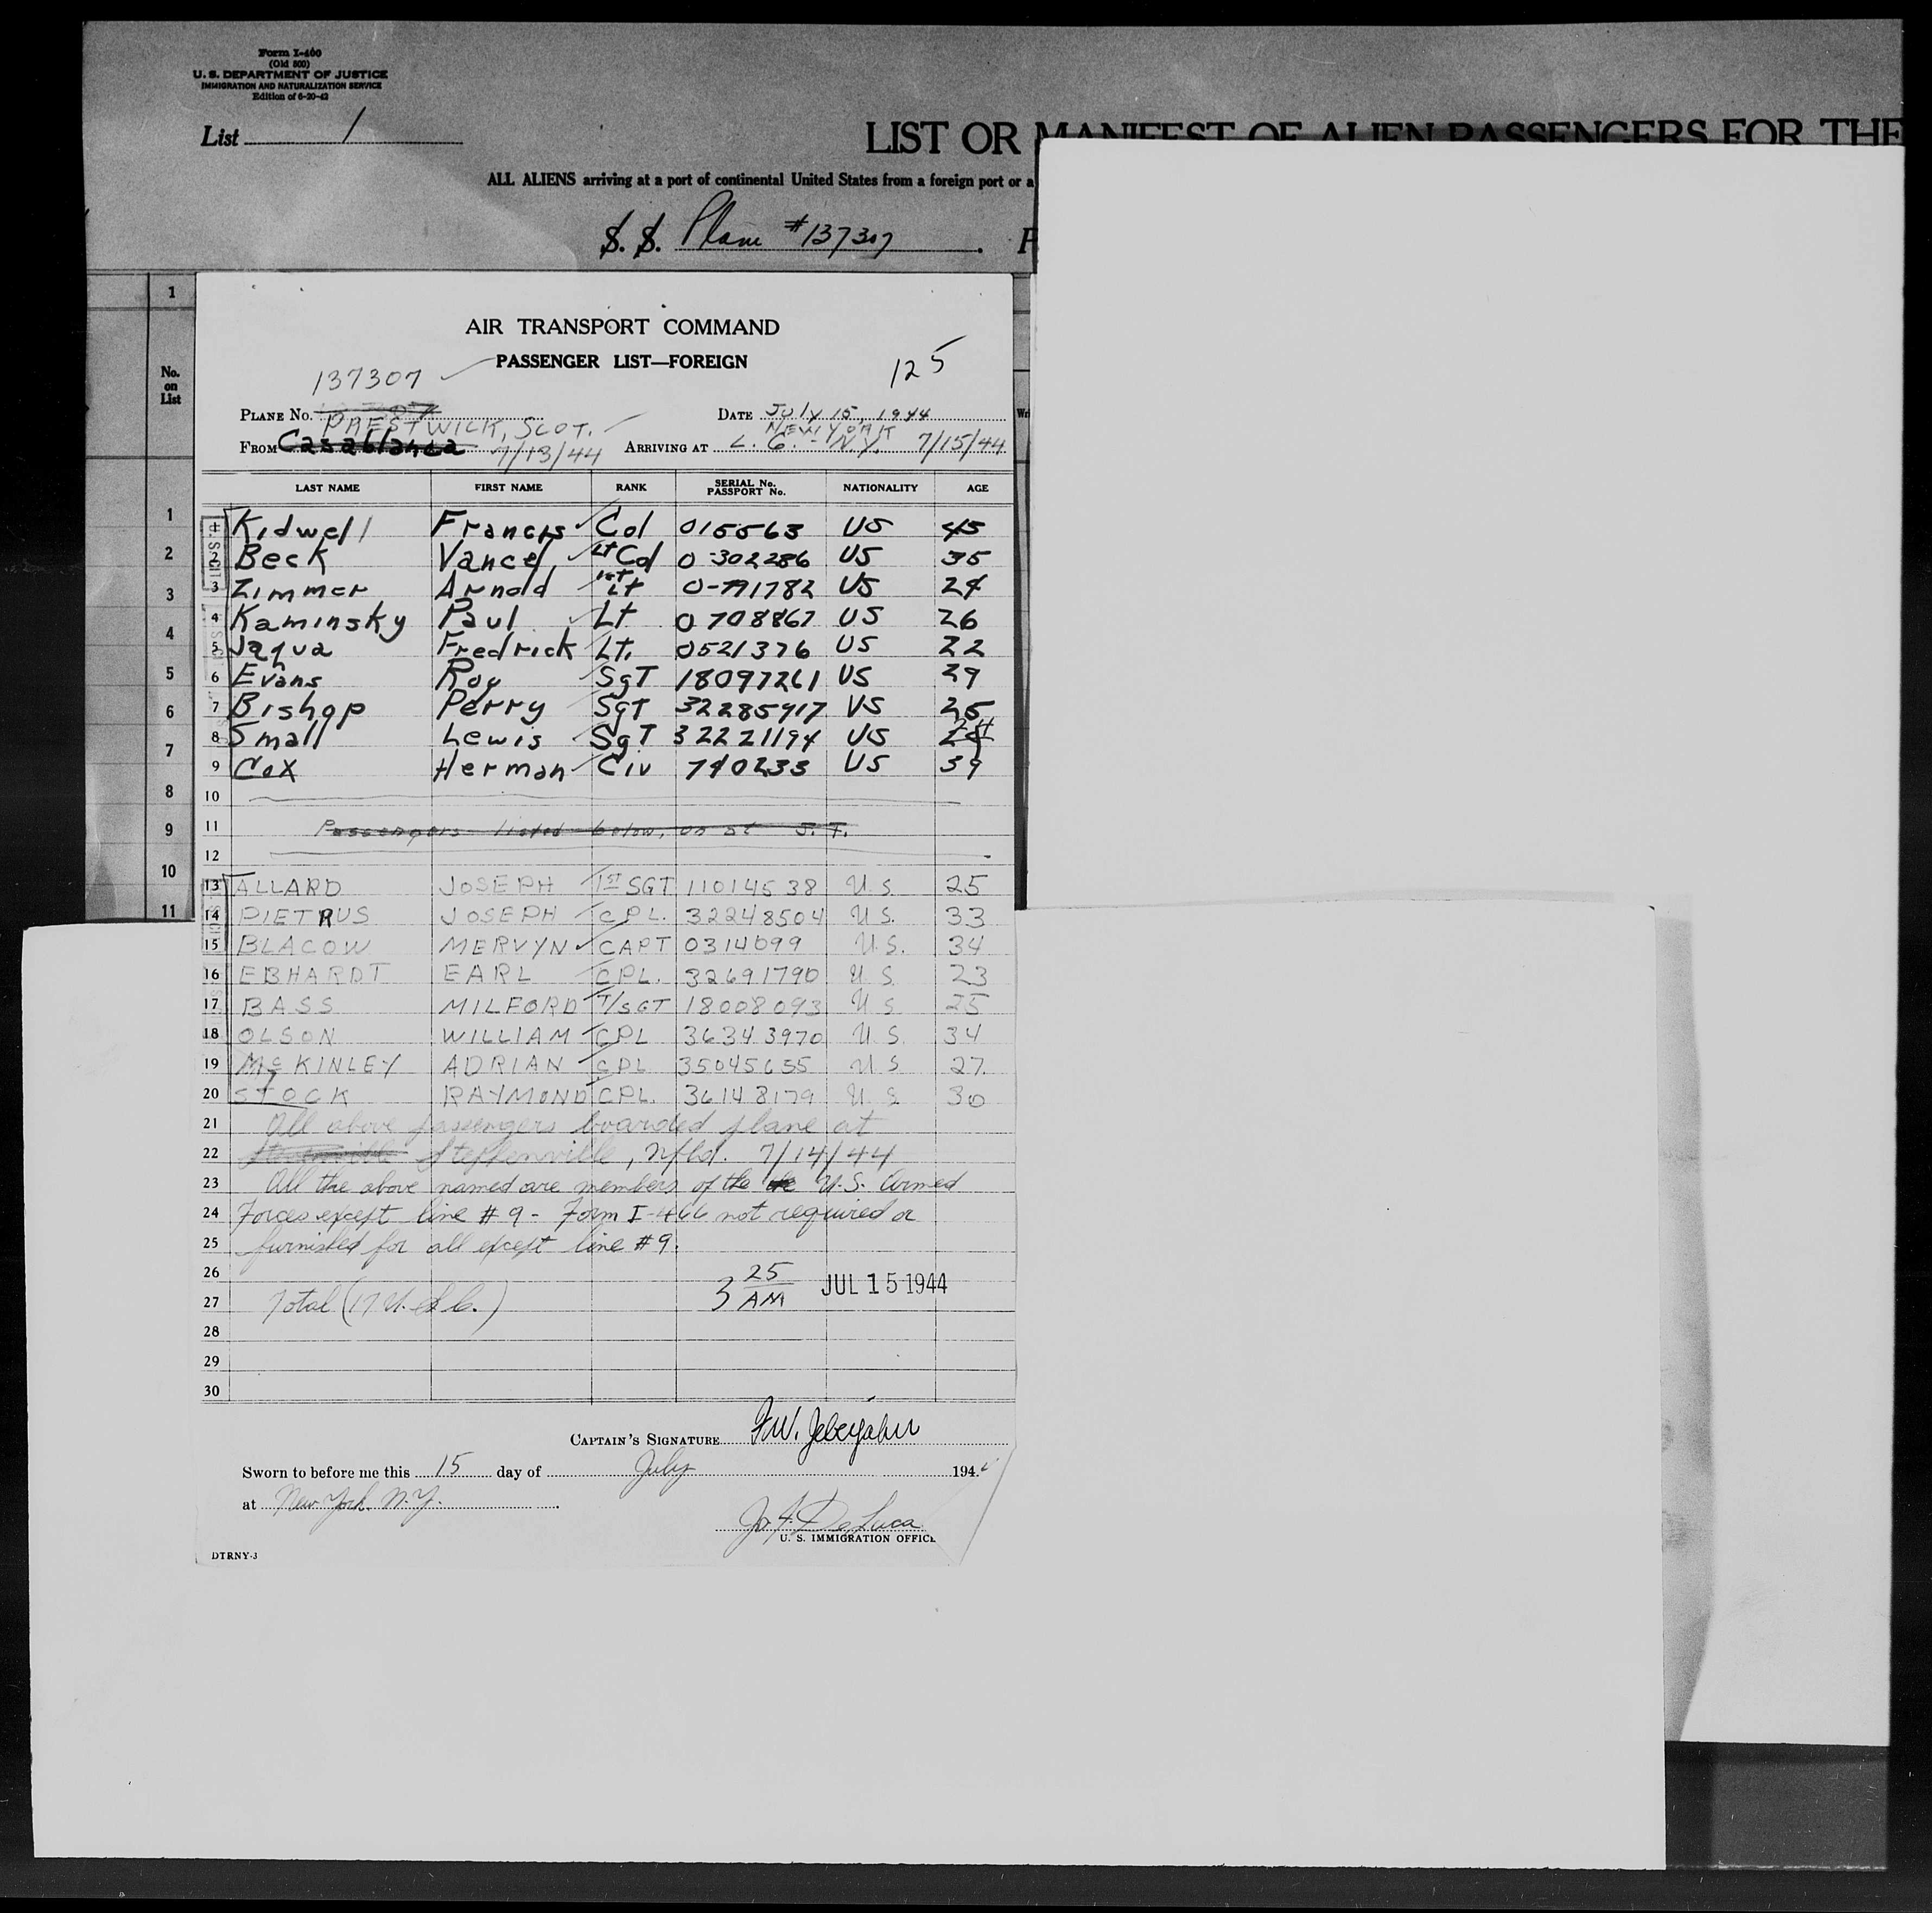 Form I-460
(Old 500)
U. S. DEPARTMENT OF JUSTICE
IMMIGRATION AND NATURALIZATION SERVICE
Edition of 6-20-42
List 1
LIST OR MANIFEST OF ALIEN PASSENGERS FOR THE
ALL ALIENS arriving at a port of continental United States from a foreign port or a
S. S. Plane #137307
1
No. on List
1
2
3
4
5
6
7
8
9
10
11
AIR TRANSPORT COMMAND
PASSENGER LIST—FOREIGN
125
137307
PLANE No.
DATE July 15, 1944
PRESTWICK, SCOT.
NEW YORK
FROM Casablanca 7/13/44 ARRIVING AT L. G. - N.Y. 7/15/44
LAST NAME FIRST NAME RANK SERIAL No. PASSPORT No. NATIONALITY AGE
Kidwell Francis Col 015563 US 45
2 Beck Vance Lt Col 0-302286 US 35
3 Zimmer Arnold 1st Lt 0-791782 US 24
4 Kaminsky Paul Lt 0708867 US 26
5 Jaqua Fredrick Lt. 0521376 US 22
6 Evans Roy SgT 18097261 US 29
7 Bishop Perry SgT 32285917 US 25
8 Small Lewis SgT 32221194 US 24
9 Cox Herman Civ 740233 US 39
10
11 Passengers listed below, on at S.T.
12
13 ALLARD JOSEPH 1ST SGT 11014538 U.S. 25
14 PIETRUS JOSEPH CPL. 32248504 U.S. 33
15 BLACOW MERVYN CAPT 0314099 U.S. 34
16 EBHARDT EARL CPL. 32691790 U.S. 23
17 BASS MILFORD T/SGT 18008093 U.S. 25
18 OLSON WILLIAM CPL 36343970 U.S. 34
19 McKINLEY ADRIAN CPL 35045655 U.S. 27
20 STOCK RAYMOND CPL. 36148179 U.S. 30
21 All above passengers boarded plane at
22 Stephenville, Nfld. 7/14/44
23 All the above named are members of the U.S. Armed
24 Forces except line #9 - Form I-466 not required or
25 furnished for all except line #9.
26 3 25 AM JUL 15 1944
27 Total (17 U.S.C.)
28
29
30
CAPTAIN'S SIGNATURE
Sworn to before me this 15 day of July 194
at New York, N.Y.
Jos. F. DeLuca
U. S. IMMIGRATION OFFICE
DTRNY-3